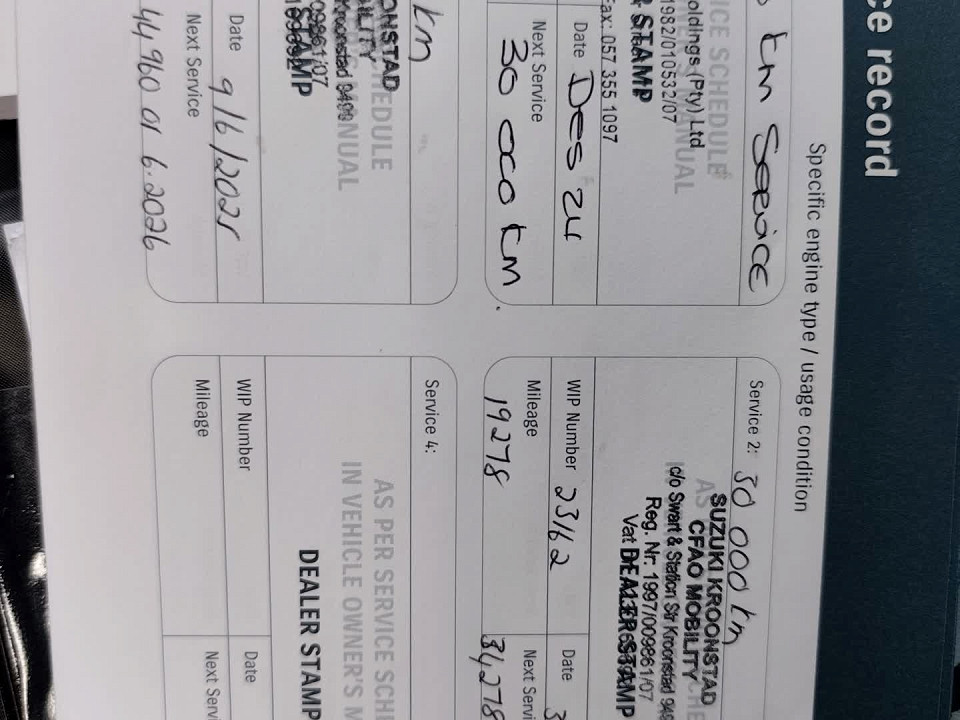 ce record
Specific engine type / usage condition
km Service
ICE SCHEDULE
oldings (Pty) Ltd
1982/010532/07
STAMP
Fax: 057 355 1097
Date Des 24
Next Service
30 000 km
Service 2: 30 000 km
SUZUKI KROONSTAD
CFAO MOBILITY
c/o Swart & Station Str Kroonstad 949
Reg. Nr. 1997/009861/07
DEALER STAMP
WIP Number 23162
Date 3
Mileage
19278
Next Servi
34278
km
ONSTAD
EDULE
ILITY
NUAL
Kroonstad 9499
09861/07
STAMP
Date 9/6/2025
Next Service
44960 01 6.2026
Service 4:
AS PER SERVICE SCHE
IN VEHICLE OWNER'S M
DEALER STAMP
WIP Number
Date
Mileage
Next Servi